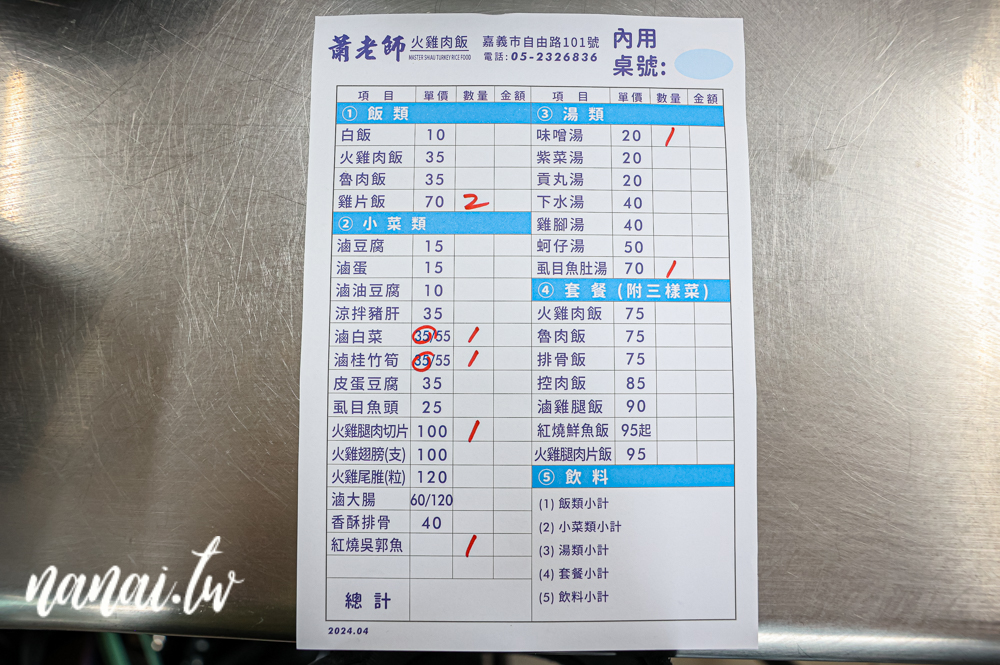 蕭老師 火雞肉飯 嘉義市自由路101號 內用
MASTER SHIAU TURKEY RICE FOOD 電話:05-2326836 桌號:
項目 單價 數量 金額 項目 單價 數量 金額
① 飯類
白飯 10
火雞肉飯 35
魯肉飯 35
雞片飯 70 2
② 小菜類
滷豆腐 15
滷蛋 15
滷油豆腐 10
涼拌豬肝 35
滷白菜 35/55 /
滷桂竹筍 35/55 /
皮蛋豆腐 35
虱目魚頭 25
火雞腿肉切片 100 /
火雞翅膀(支) 100
火雞尾脽(粒) 120
滷大腸 60/120
香酥排骨 40
紅燒吳郭魚 /
總計
③ 湯類
味噌湯 20 /
紫菜湯 20
貢丸湯 20
下水湯 40
雞腳湯 40
蚵仔湯 50
虱目魚肚湯 70 /
④ 套餐(附三樣菜)
火雞肉飯 75
魯肉飯 75
排骨飯 75
控肉飯 85
滷雞腿飯 90
紅燒鮮魚飯 95起
火雞腿肉片飯 95
⑤ 飲料
(1) 飯類小計
(2) 小菜類小計
(3) 湯類小計
(4) 套餐小計
(5) 飲料小計
2024.04
nanai.tw